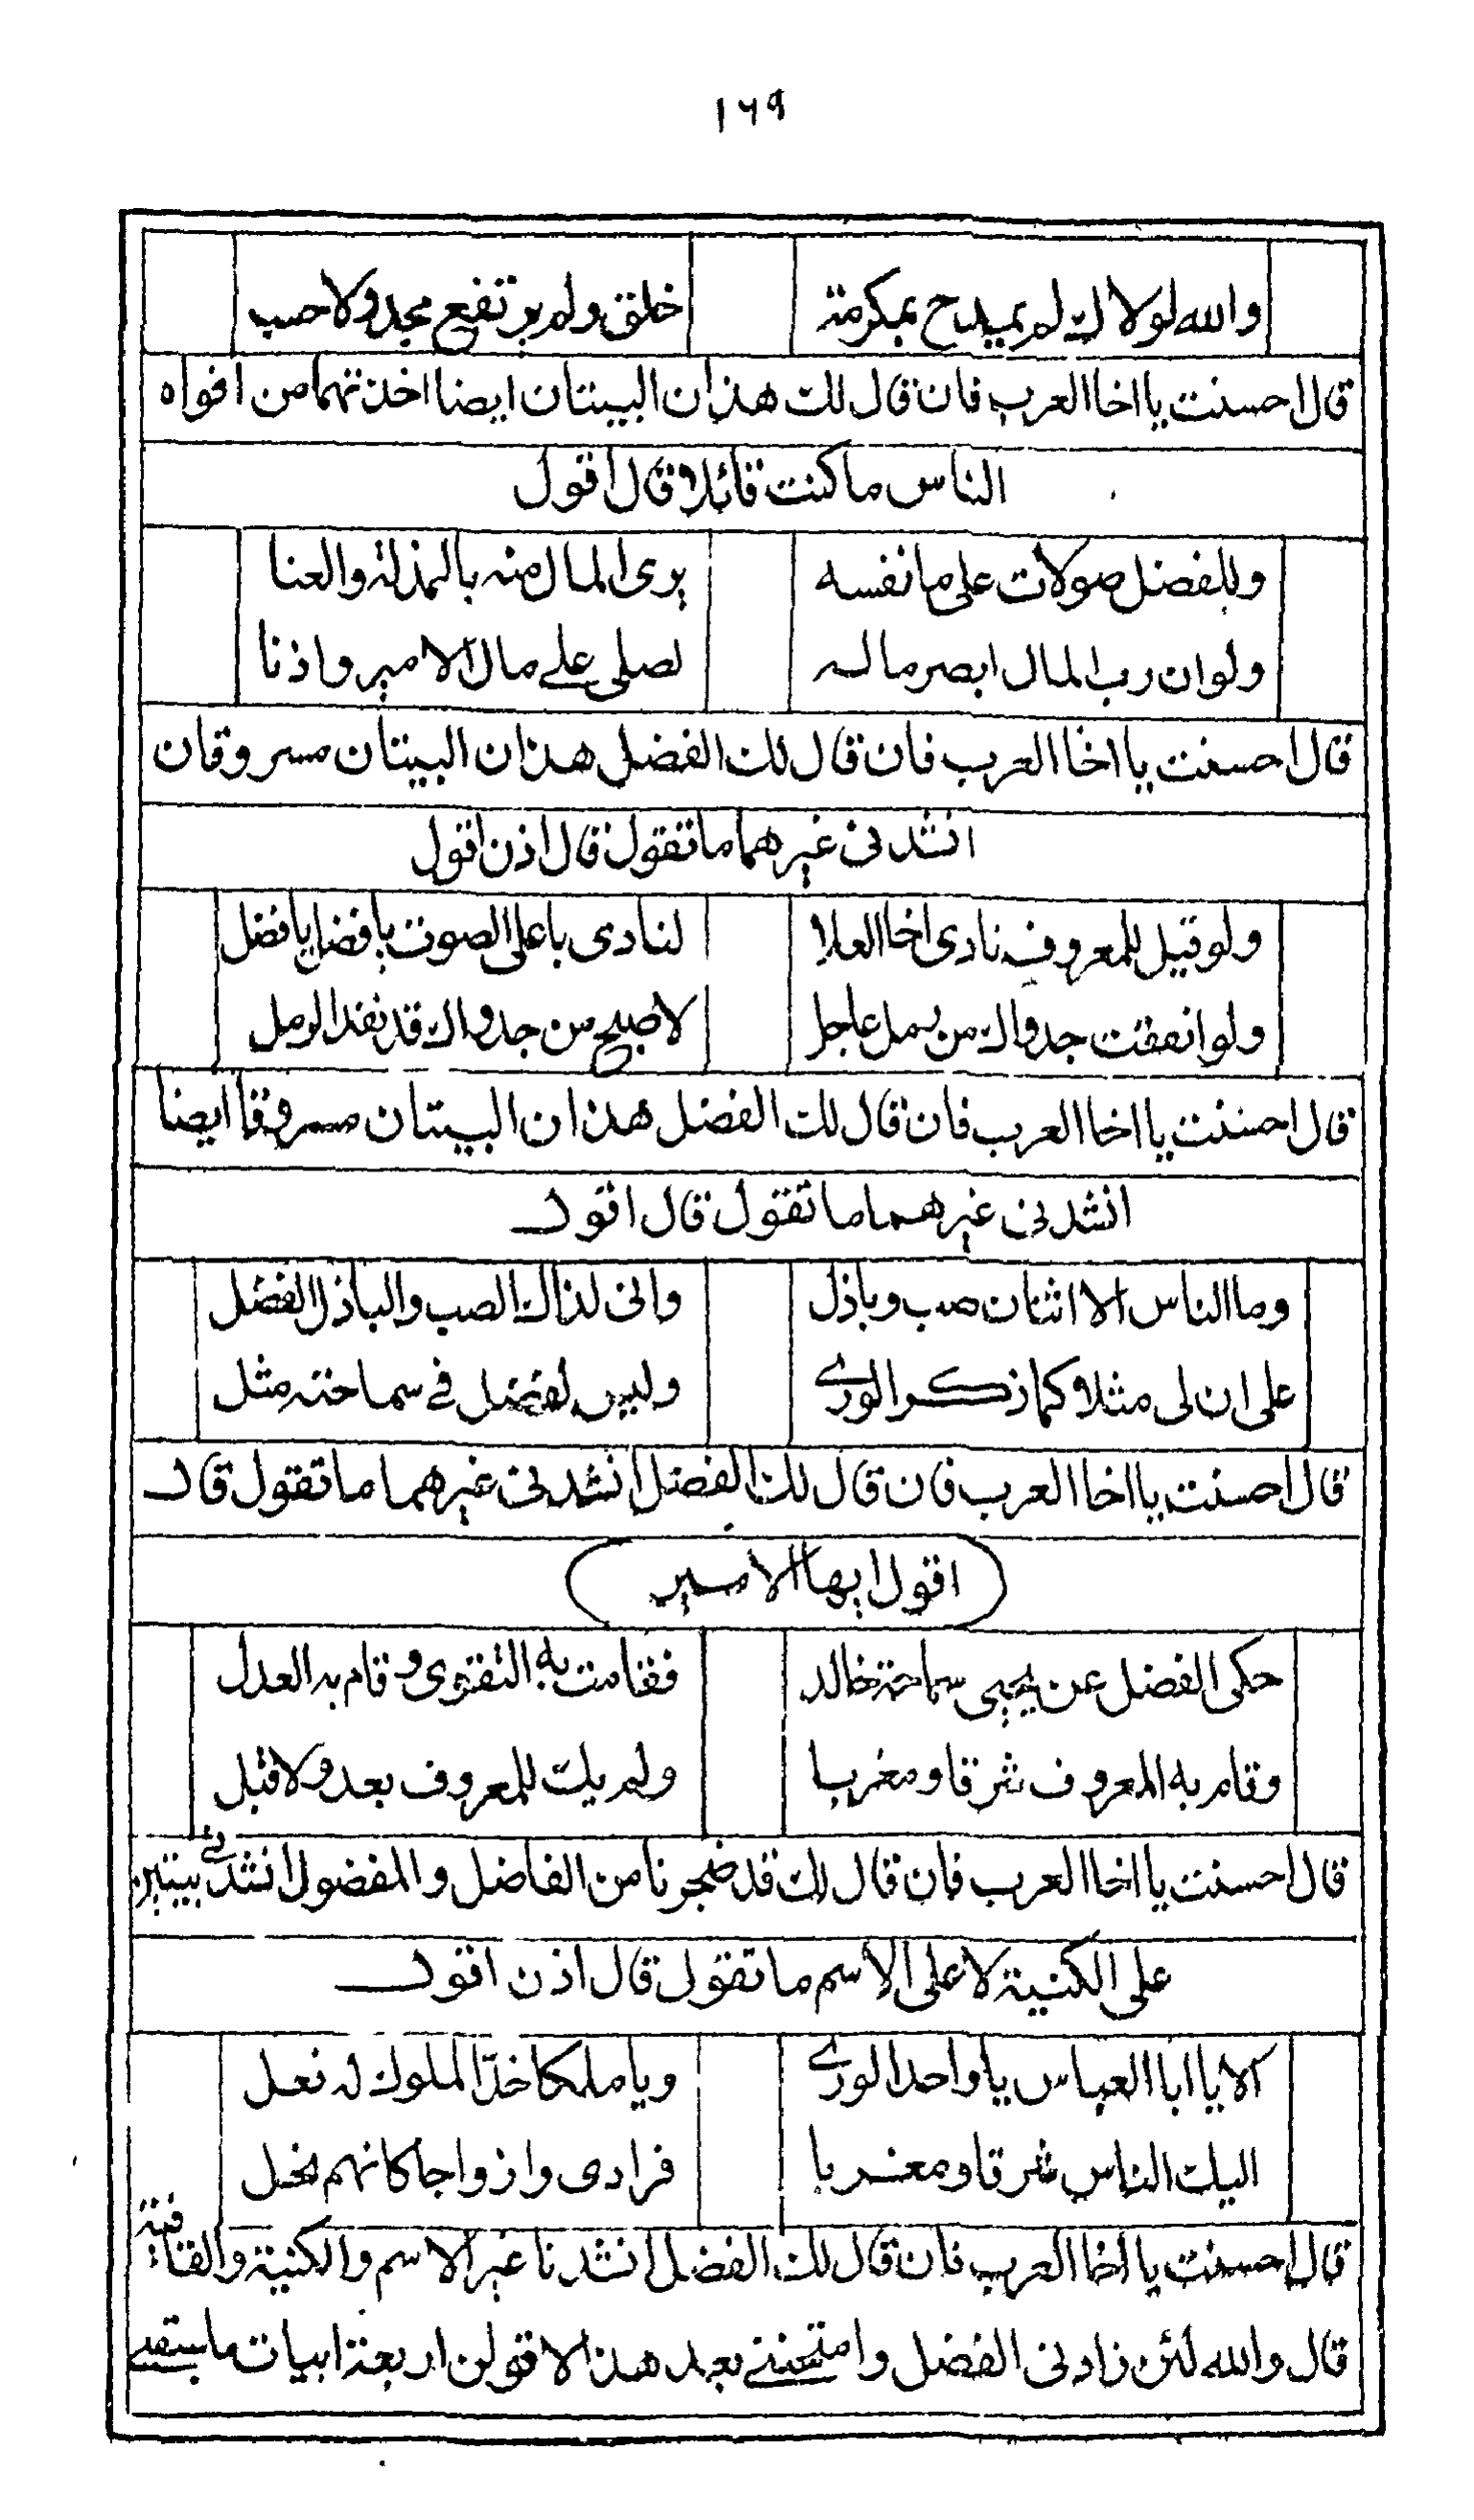 ١٦٩
والله لولاك لم يمدح بمكرمة خلق ولم يرتفع مجد ولا حسب
قال احسنت يا اخا العرب فان قال لك هذان البيتان ايضا اخذتهما من افواه
الناس ما كنت قائلا قال اقول
وللفضل صولات على مانفسه يرى المال منه بالمذلة والعنا
ولو ان رب المال ابصر ماله لصلى على مال الامير واذنا
قال احسنت يا اخا العرب فان قال لك الفضل هذان البيتان مسروقان
انشدنى غيرهما ما تقول قال اذن اقول
ولو قيل للمعروف نادى اخا العلا لنادى باعلى الصوت يا فضل يا فضل
ولو انفقت جدواك من رمل عالج لاصبح من جدواك قد نفد الرمل
قال احسنت يا اخا العرب فان قال لك الفضل هذان البيتان مسروقا ايضا
انشدنى غيرهما ما تقول قال اقول
وما الناس الا اثنان صب وباذل وانى لذاك الصب والباذل الفضل
على ان لى مثلا كما ذكر الورى وليس لفضل في سماحته مثل
قال احسنت يا اخا العرب فان قال لك الفضل انشدنى غيرهما ما تقول قال
(اقول ايها الامير)
حكى الفضل عن يحيى سماحة خالد فقامت به التقوى وقام به العدل
وقام به المعروف شرقا ومغربا ولم يك للمعروف بعد ولا قبل
قال احسنت يا اخا العرب فان قال لك قد ضجرنا من الفاضل والمفضول انشدنى بيتين
على الكنية لا على الاسم ما تقول قال اذن اقول
الا يا ابا العباس يا واحد الورى ويا ملكا خدّ الملوك له نعل
اليك الناس شرقا ومغربا فرادى وازواجا كانهم نحل
قال احسنت يا اخا العرب فان قال لك الفضل انشدنا غير الاسم والكنية والقافية
قال والله لئن زادنى الفضل وامتحننى بعد هذا لاقولن اربعة ابيات ما سبقنى